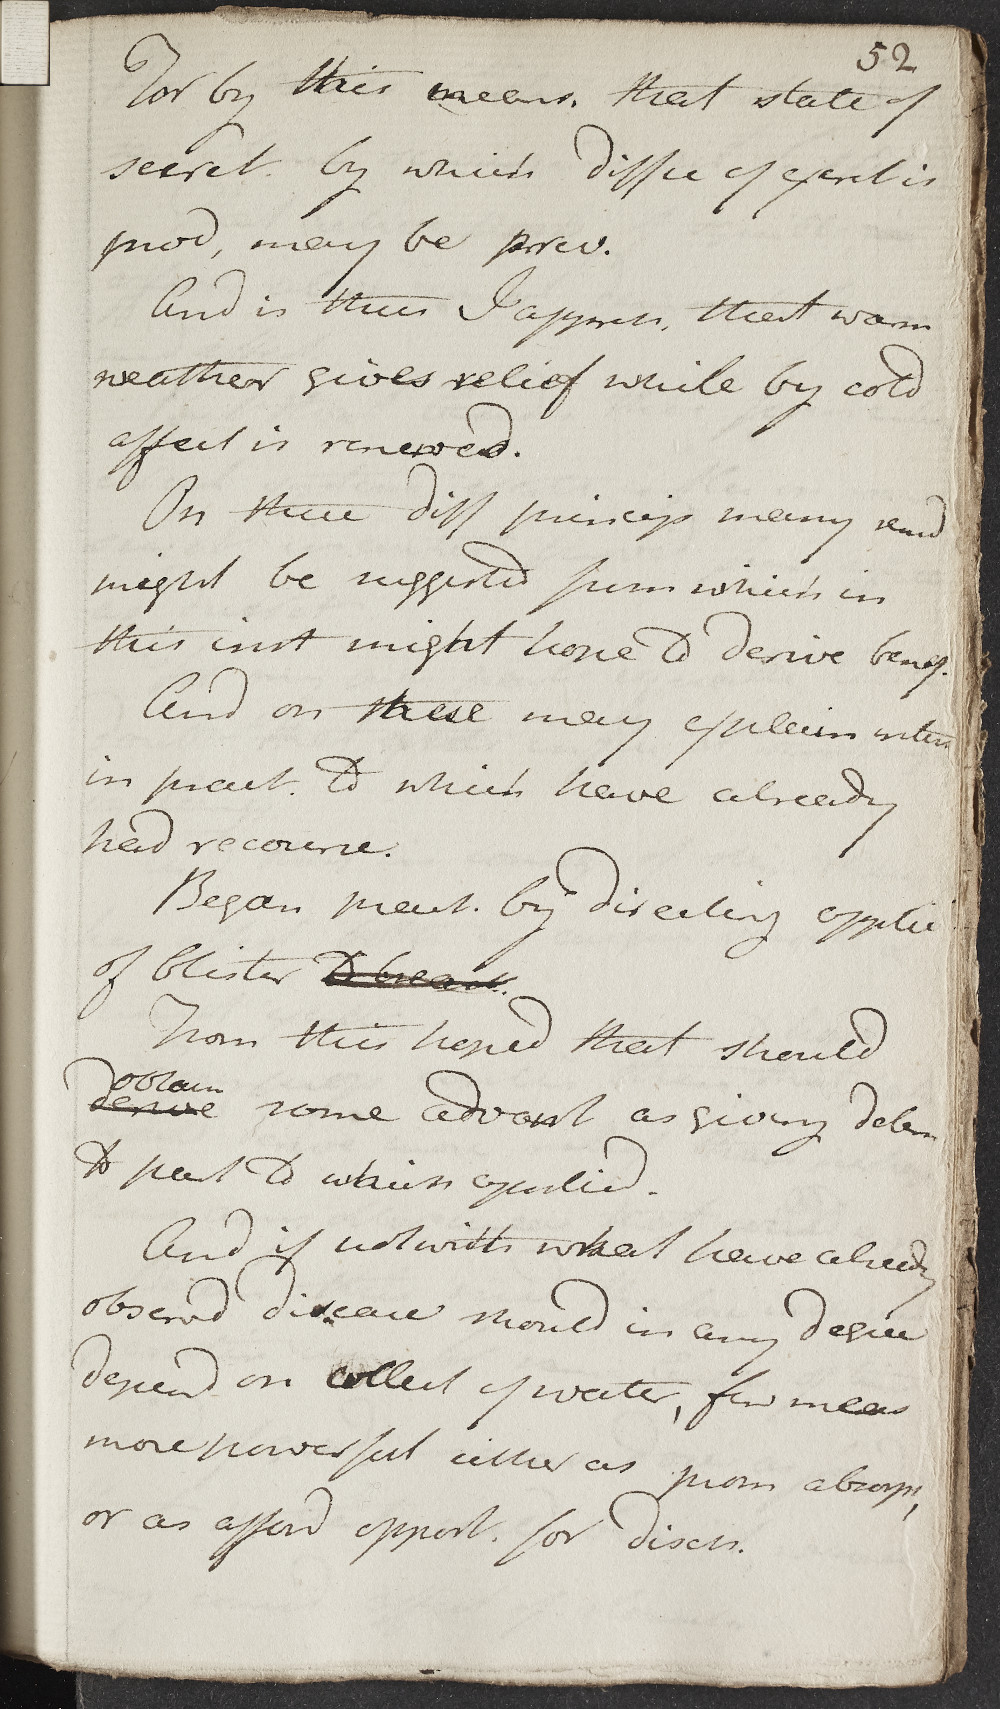 52
For by this means. that state of
secret. by which diffic of expect is
prod, may be prev.
And is thus I appreh. that warm
weather gives relief while by cold
affect is renewed.
On these diff princips many remd
might be suggested from which in
this inst might hope to derive benef.
And on these may explain
in pract. to which have already
had recourse.
Began pract. by directing applic
of blister to breast.
From this hoped that should
obtain
derive some advant as giving determ
to part to which applied.
And if notwith what have already
observd disease should in any degree
depend on collect of water, few means
more powerful either as prom absorp,
or as afford opport. for disch.